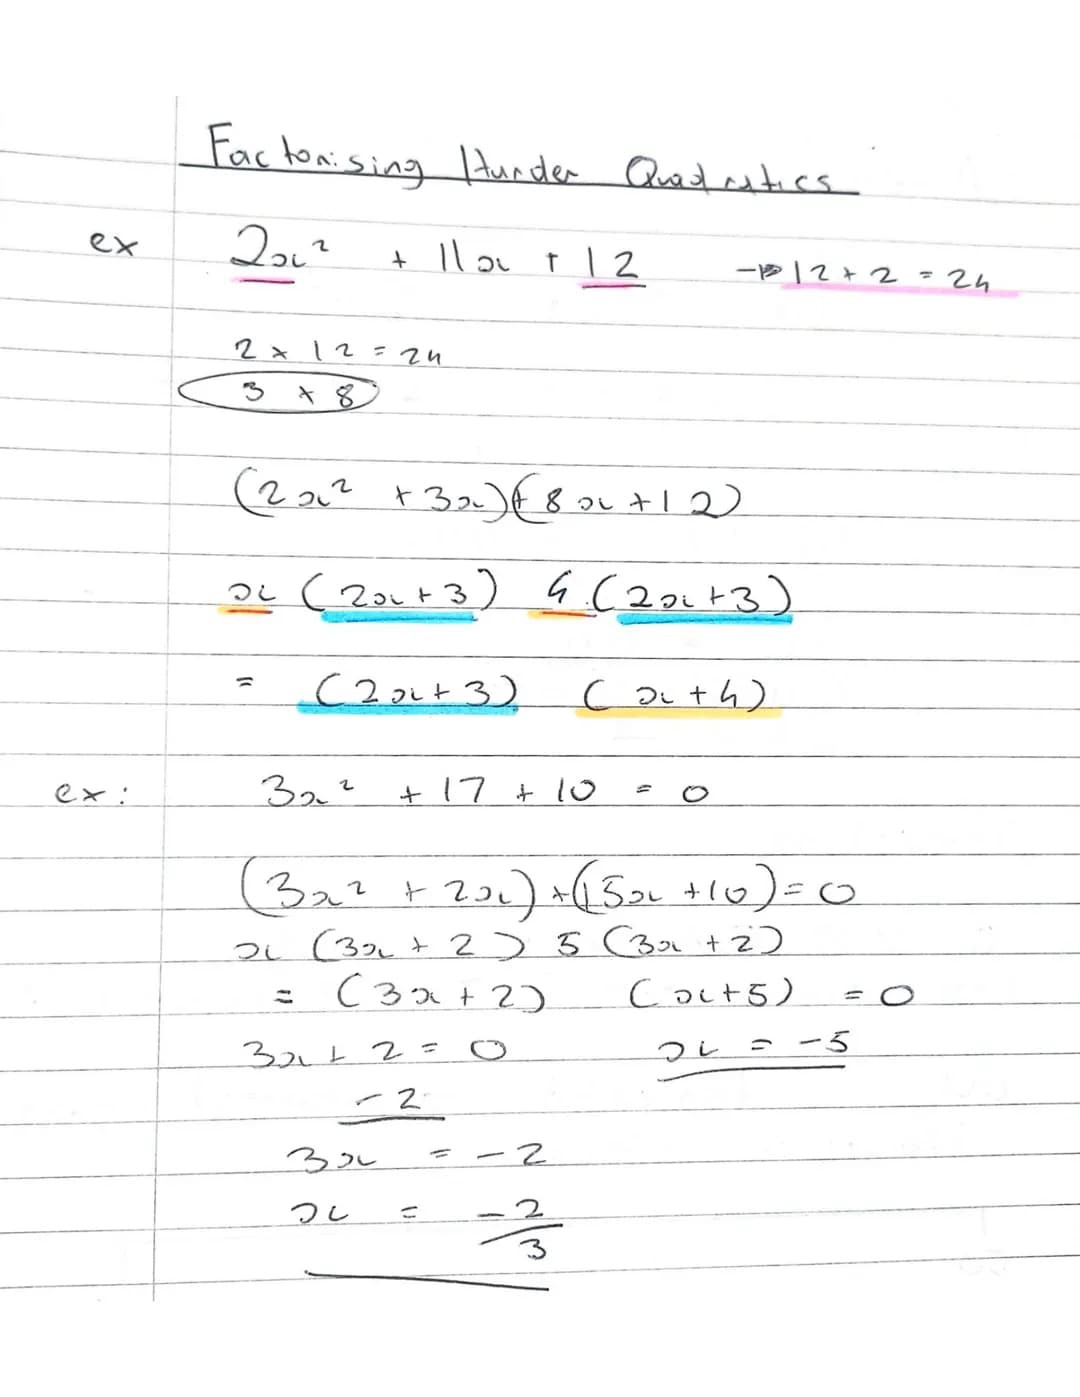 Factorising Harder Quadratics
ex 2x² + 11x + 12 → 12 + 2 = 24
2 × 12 = 24
3 × 8
(2x² + 3x)(+ 8x + 12)
x (2x + 3) 4 (2x + 3)
= (2x + 3) (x + 4)
ex: 3x² + 17 + 10 = 0
(3x² + 2x) + (15x + 10) = 0
x (3x + 2) 5 (3x + 2)
= (3x + 2) (x + 5) = 0
3x + 2 = 0 x = -5
- 2
3x = - 2
x = -2/3